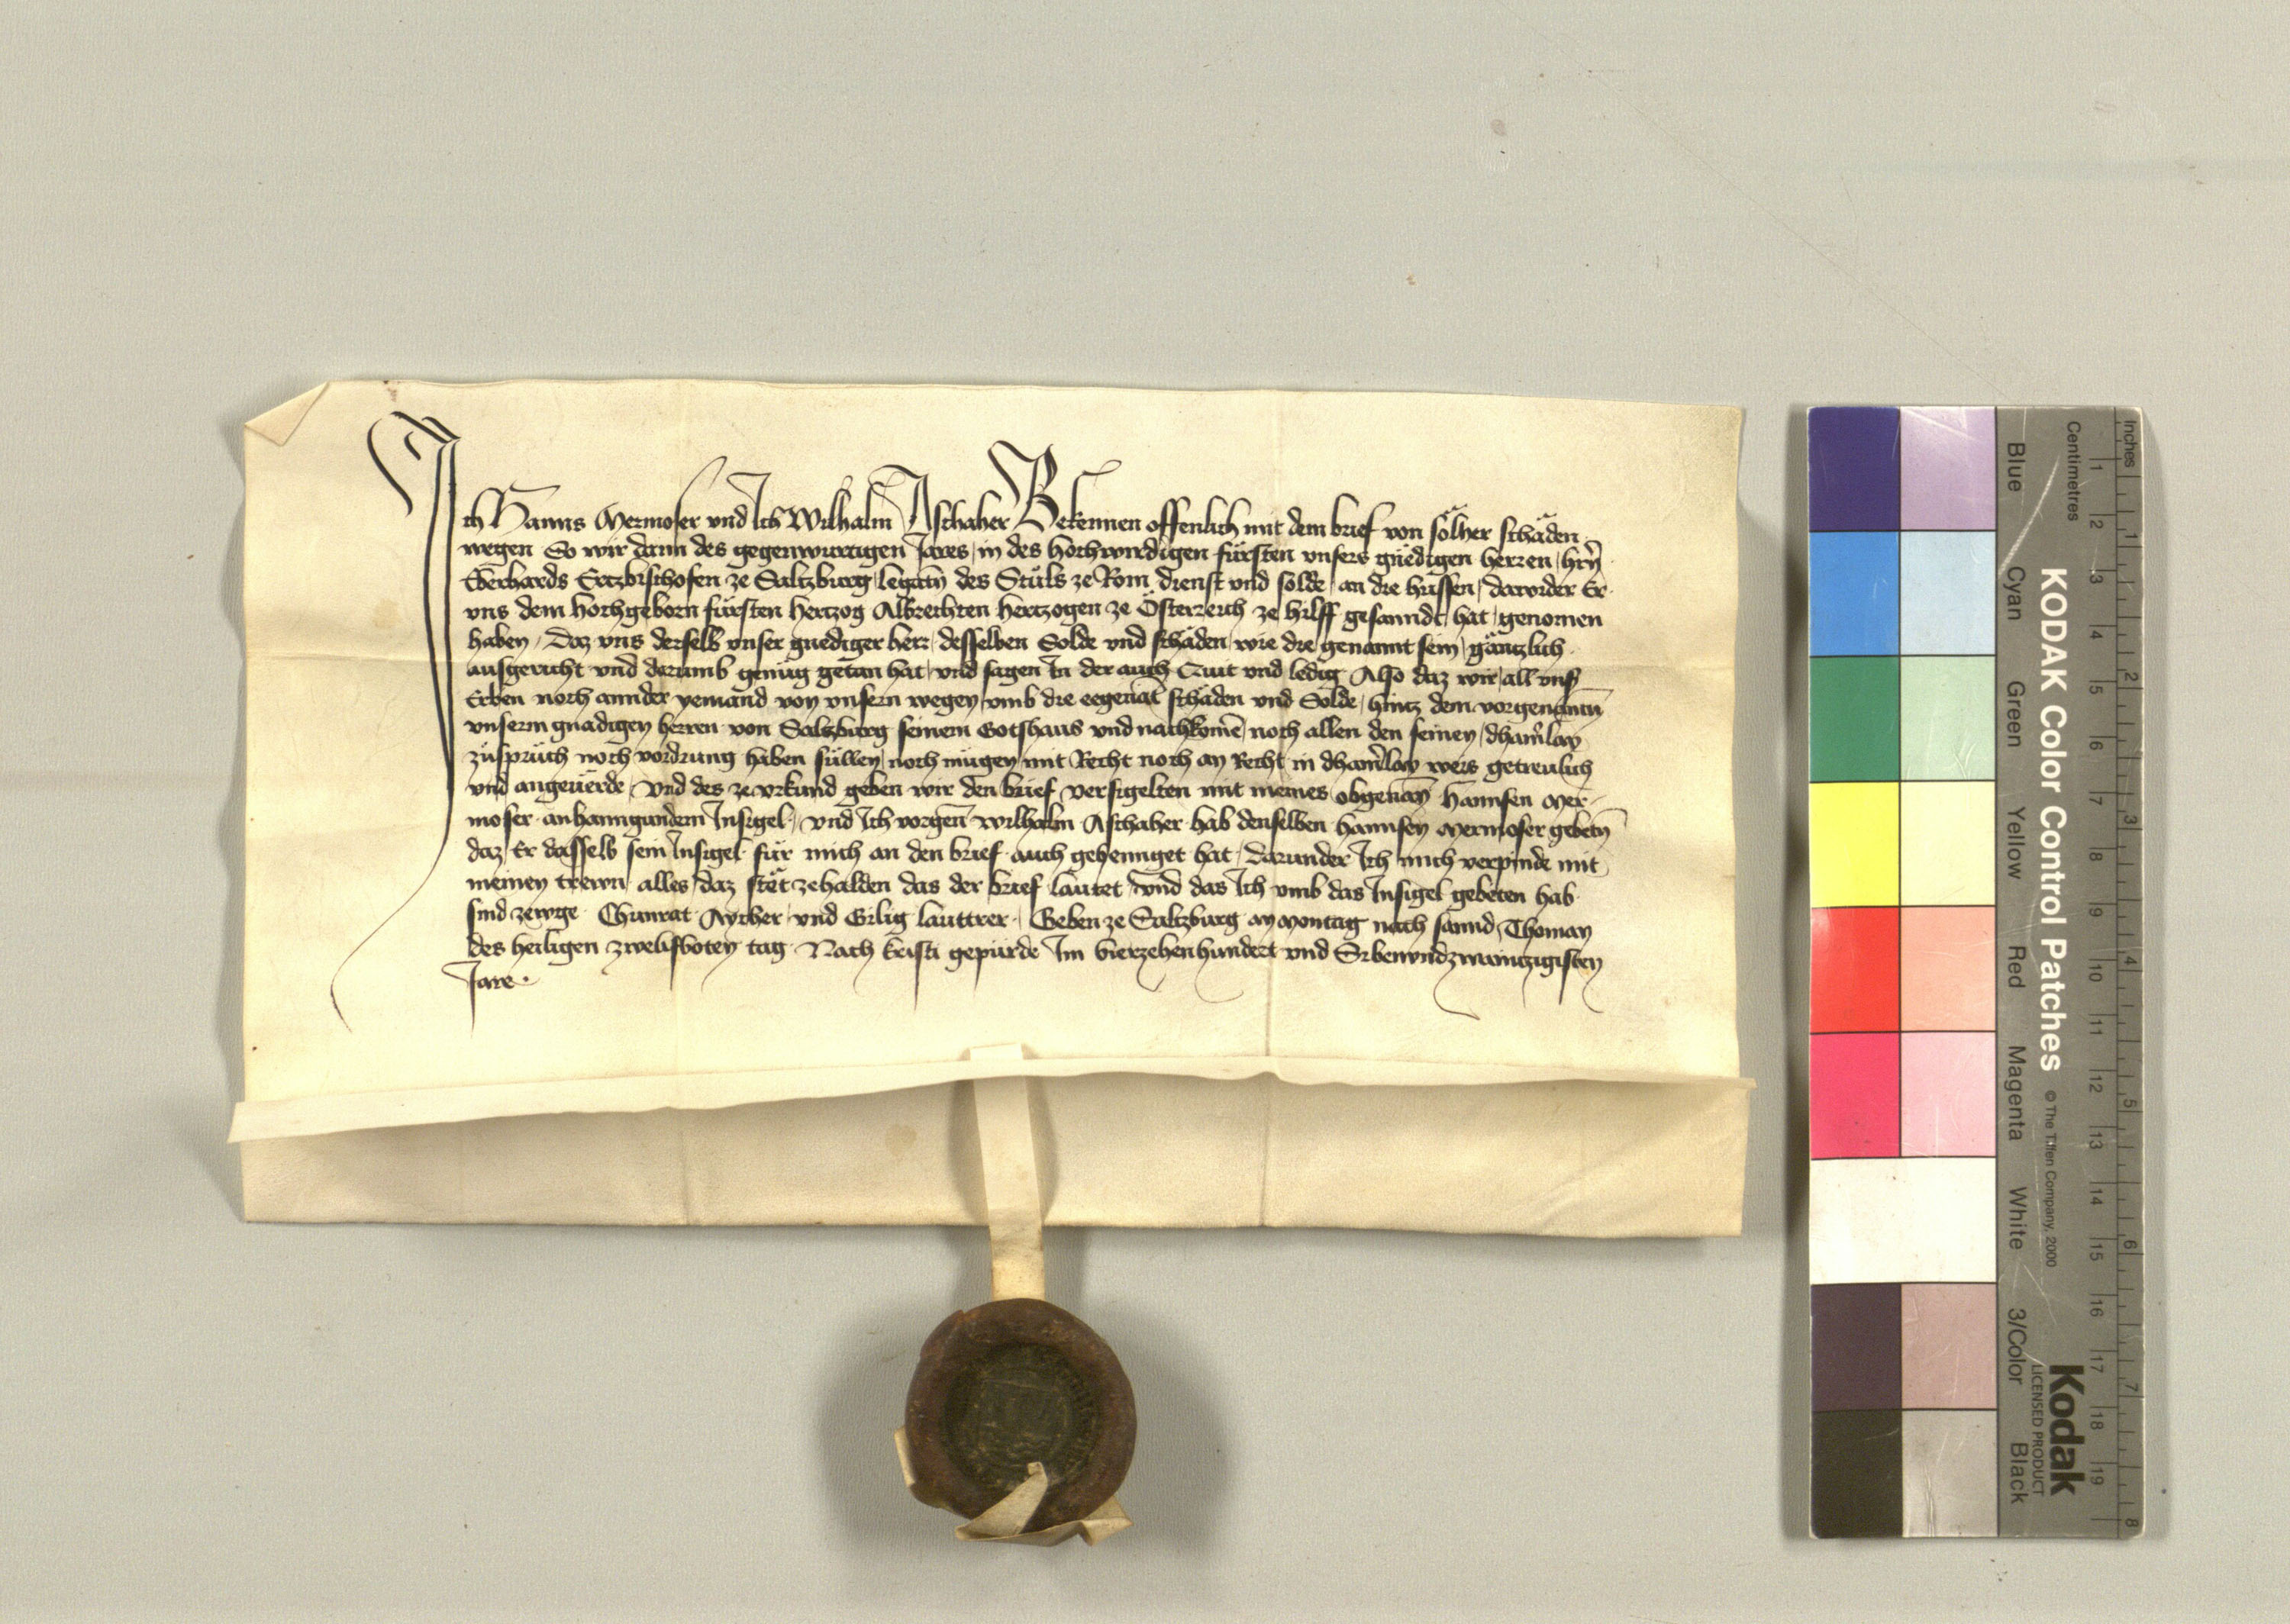 Ich Hanns Mermoser vnd Ich Wilhalm Aschaher Bekennen offenlich mit dem brief von sölher schäden
wegen So wir dann des gegenwurtigen Jares in des hochwirdigen fürsten vnsers gnedigen herren hrñ
Eberhards Ertzbischofen ze Saltzburg legatñ des Stůls ze Rom dienst vnd solde an die hussen darwider Er
vns dem hochgeborn fürsten hertzog Albrechten hertzogen ze Österreich ze hilff gesanndt hat genomen
haben Daz vns derselb vnser gnediger herr desselben Solde vnd schäden wie die genannt sein gäntzlich
ausgericht vnd darumb genůg getan hat vnd sagen In der auch Quit vnd ledig Also daz wir all vnsʾ
Erben noch annder yemand von vnsern wegen vmb die eegenāt schaden vnd Solde hintz dem vorgenantñ
vnserm gnadigen herren von Saltzburg seinem Gotshaus vnd nachkomē noch allen den seinen dhainʾlay
zůsprůch noch vordrung haben süllen noch mügen mit Recht noch an Recht in dhainʾlay weis getreulich
vnd angeuerde Vnd des ze vrkund geben wir den brief versigelten mit meines obgenañ Hannsen Mer-
moser anhanngundem Insigel vnd Ich vorgeñ Wilhalm Aschaher hab denselben hannsen Mermoser gebetñ
daz Er dasselb sein Insigel für mich an den brief auch gehennget hat Darunder Ich mich verpinde mit
meinen trewn alles daz stët zehalden das der brief lautet vnd das Ich vmb das Insigel gebeten hab
sind zewge Chunrat Aycher vnd Gilig lauttrer Geben ze Saltzburg an Montag nach sannd Thoman
des heiligen zwelifboten tag Nach kristi gepurde Im vierzehenhundert vnd Sibenvndzwaintzigisten
Jare
KODAK Color Control Patches
© The Tiffen Company, 2000
Kodak
LICENSED PRODUCT
Blue Cyan Green Yellow Red Magenta White 3/Color Black
Centimetres
1 2 3 4 5 6 7 8 9 10 11 12 13 14 15 16 17 18 19
Inches
1 2 3 4 5 6 7 8